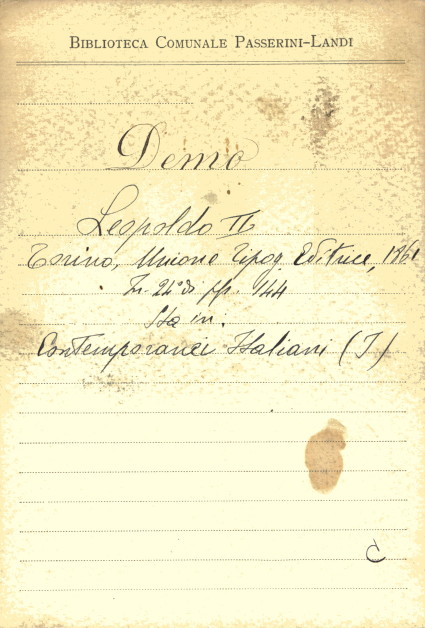 BIBLIOTECA COMUNALE PASSERINI-LANDI
Demo
Leopoldo II
Torino, Unione Tipog Editrice, 1861
In. 24° di pp. 144
Sta in.
Contemporanei Italiani (I)
C